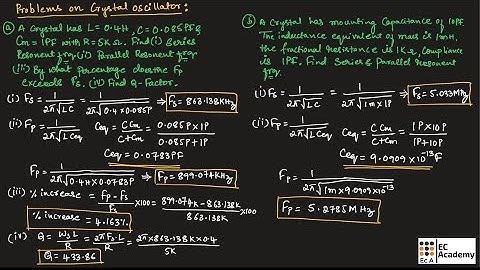 Problems on Crystal oscillator:
(a) A Crystal has L = 0.4H, C = 0.085PF &
Cm = 1PF with R = 5KΩ. Find (i) Series
Resonent frqy (ii) Parallel Resonent frqy
(iii) By what Percentage does the Fp
exceeds Fs. (iv) Find Q-Factor.
(i) Fs = 1/2π√LC = 1/2π√0.4×0.085P ⇒ Fs = 863.138KHz
(ii) Fp = 1/2π√LCeq Ceq = C Cm/C+Cm = 0.085P × 1P/0.085P+1P
Ceq = 0.0783PF
Fp = 1/2π√0.4H×0.0783P ⇒ Fp = 899.074KHz
(iii) % increase = Fp - Fs/Fs ×100 = 899.074K - 863.138K/863.138K ×100
% increase = 4.163%
(iv) Q = WsL/R = 2πFs.L/R = 2π×863.138K×0.4/5K
Q = 433.86
(b) A Crystal has mounting Capacitance of 10PF.
The inductance equivalent of mass is 1mH,
the frictional Resistance is 1KΩ, Compliance
is 1PF. Find Series & Parallel Resonent
frqy.
(i) Fs = 1/2π√LC = 1/2π√1m×1P ⇒ Fs = 5.033MHz
(ii) Fp = 1/2π√LCeq Ceq = C Cm/C+Cm = 1P×10P/1P+10P
Ceq = 9.0909×10⁻¹³F
Fp = 1/2π√1m×9.0909×10⁻¹³
Fp = 5.2785MHz
EC
Academy
EC A